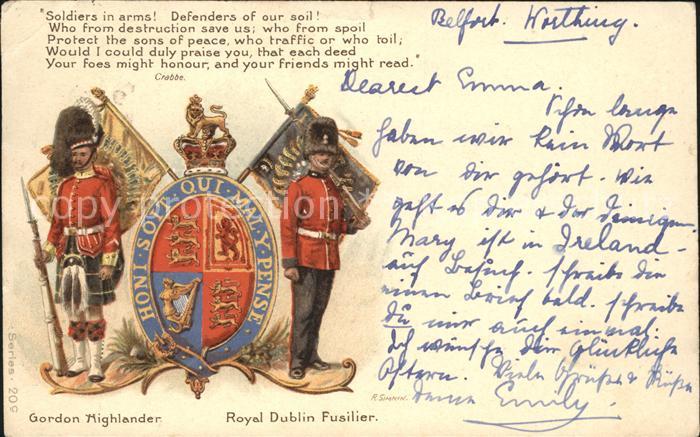 "Soldiers in arms! Defenders of our soil!
Who from destruction save us; who from spoil
Protect the sons of peace, who traffic or who toil;
Would I could duly praise you, that each deed
Your foes might honour, and your friends might read."
Crabbe.
HONI · SOIT · QUI · MAL · Y · PENSE
Series. 209
Gordon Highlander.
Royal Dublin Fusilier.
R. SIMKIN.
Belfort. Worthing.
Dearest Emma.
Schon lange
haben wir kein Wort
von dir gehört. Wie
geht es dir & der Deinigen.
Mary ist in Ireland -
auf Besuch. schreibe die
einen Brief bald. schreibe
du mir auch einmal.
Ich wünsche dir glückliche
Ostern. Viele Grüsse & Küsse
deine Emily.
copyright